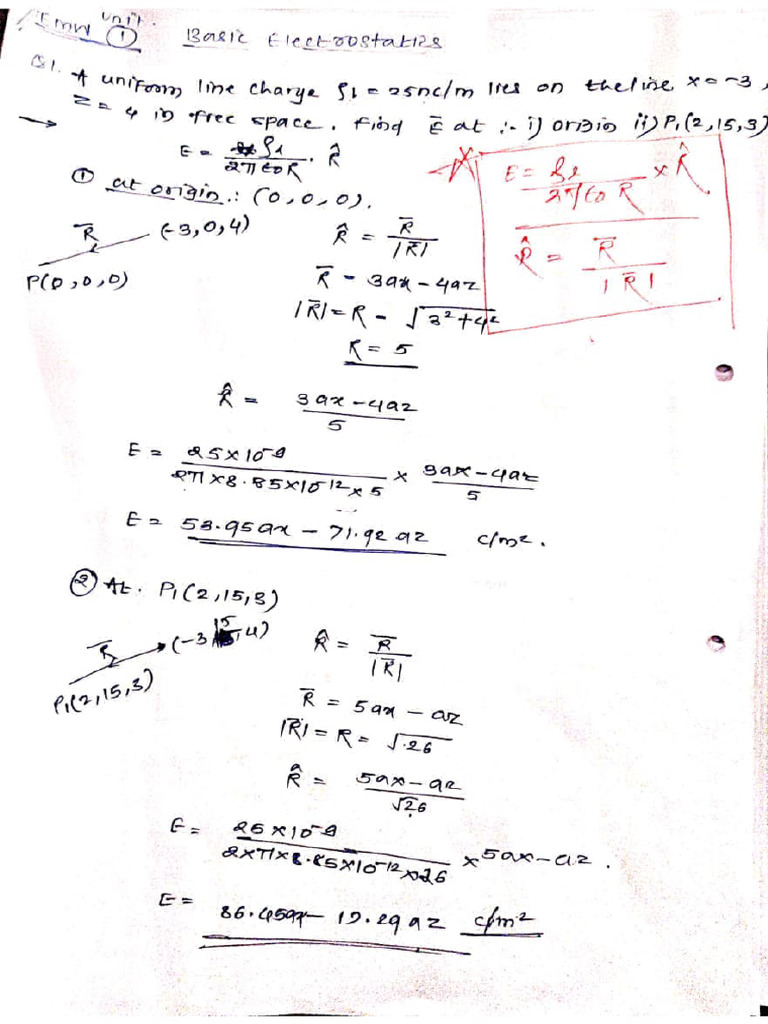 EMW Unit. ① Basic Electrostatics
Q1. A uniform line charge ρl = 25nc/m lies on the line x = -3,
z = 4 in free space. Find E̅ at :- i) origin ii) P1(2,15,3)
→ E = ρl / 2π ε0 R . R̂
① at origin.: (0,0,0).
R̅ (-3,0,4)
P(0,0,0)
R̂ = R̅ / |R̅|
R̅ - 3ax - 4az
|R̅| = R - √3²+4²
R = 5
E = ρl / 2π ε0 R × R̂
R̂ = R̅ / |R̅|
R̂ = 3ax - 4az / 5
E = 25×10⁻⁹ / 2π×8.85×10⁻¹²×5 × 3ax - 4az / 5
E = 53.95ax - 71.92az c/m².
② At. P1(2,15,3)
R̅ (-3,15,4)
P1(2,15,3)
R̂ = R̅ / |R̅|
R̅ = 5ax - az
|R̅| = R = √26
R̂ = 5ax - az / √26
E = 25×10⁻⁹ / 2×π×8.85×10⁻¹²×26 × 5ax - az.
E = 86.45ax - 17.29az c/m²